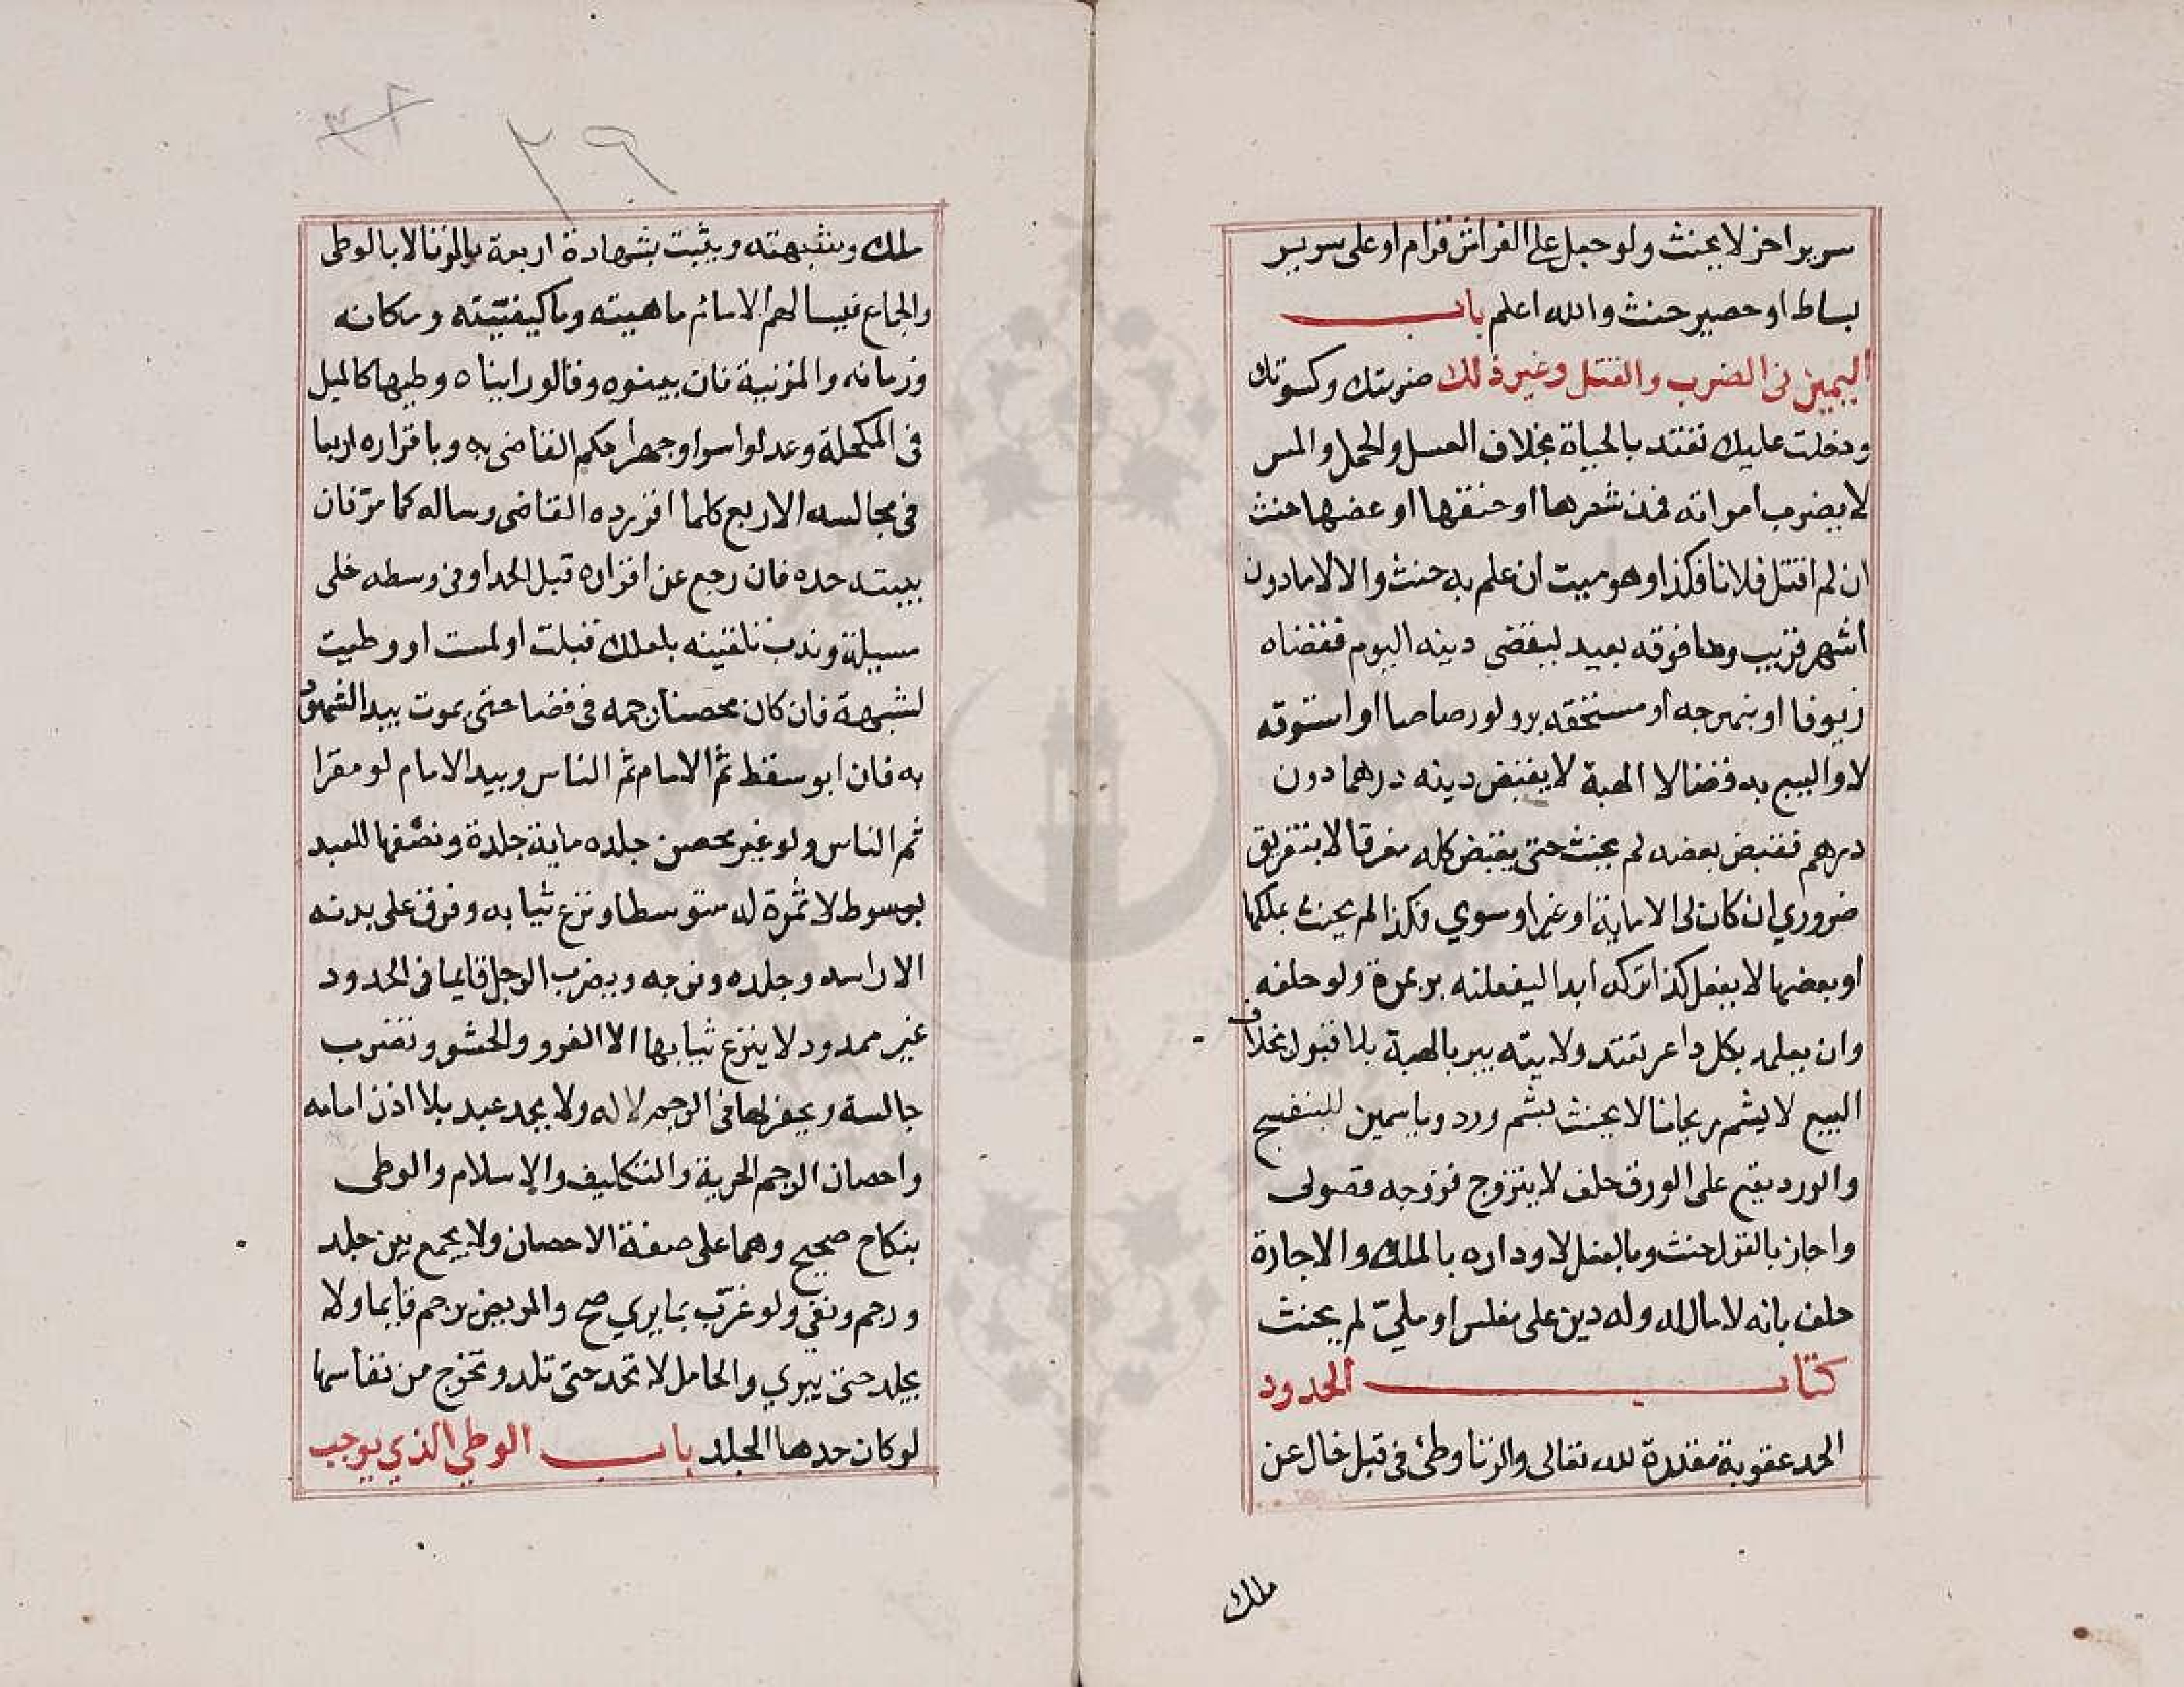 سريرا اخر لا يحنث ولو جعل على الفراش قرام او على سرير
بساط او حصير حنث والله اعلم باب
اليمين في الضرب والقتل وغير ذلك ضربتك وكسوتك
ودخلت عليك تقتد بالحياة بخلاف الغسل والحمل والمس
لا يضرب امراته فمد شعرها او خنقها او عضها حنث
ان لم اقتل فلانا فكذا وهو ميت ان علم به حنث والا لا مادون
الشهر قريب وما فوقه بعيد ليقضي دينه اليوم فقضاه
زيوفا او بنهرجه او مستحقه بر ولو رصاصا او استوقه
لا والبيع به قضا لا الهبة لا يقبض دينه درهما دون
درهم فقبض بعضه لم يحنث حتى يقبض كله مفرقا لا بتفريق
ضروري ان كان لى الا ماية او غير او سوي فكذا لم يحنث بملكها
او بعضها لا يفعل كذا تركه ابدا ليفعلنه بر بمرة ولو حلفه
وان يعلمه بكل داعر تقتد ولايته يبر بالهبة بلا قبول بخلاف
البيع لا يشم ريحانا لا يحنث بشم ورد وياسمين البنفسج
والورد يقع على الورق حلف لا يتزوج فزوجه فضولى
واجاز بالقول حنث وبالفعل لا وداره بالملك والاجارة
حلف بانه لا مال له وله دين على مفلس او ملىّ لم يحنث
كتاب الحدود
الحد عقوبة مقدرة لله تعالى والزنا وطئ في قبل خال عن
ملك
٢٩
ملك وشبهته ويثبت بشهادة اربعة بالزنا لا بالوطى
والجماع فيسالهم الامام ماهيته وكيفيّته ومكانه
وزمانه والمزنية فان بينوه وقالو رايناه وطيها كالميل
في المكحلة وعدلوا سرا وجهرا حكم القاضى به وباقراره اربعا
في مجالسه الاربع كلما اقر رده القاضى وساله كما مرّ فان
بينه حده فان رجع عن اقراره قبل الحد او في وسطه خلى
سبيله وندب تلقينه بلعلك قبلت او لمست او وطيت
لشبهة فان كان محصنا رجمه في فضا حتى يموت يبدا الشهود
به فان ابو سقط ثم الامام ثم الناس ويبدا الامام لو مقرا
ثم الناس ولو غير محصن جلده ماية جلدة ونصفها للعبد
بسوط لا ثمرة له متوسطا ونزع ثيابه وفرق على بدنه
الا راسه وجلده وفرجه ويضرب الرجل قايما في الحدود
غير ممدود لا ينزع ثيابها الا الفرو والحشو وتضرب
جالسة ويحفر لها في الرجم لا له ولا يحد عبد بلا اذن امامه
واحصان الرجم الحرية والتكليف والاسلام والوطى
بنكاح صحيح وهما على صفة الاحصان ولا يجمع بين جلد
ورجم ونفي ولو غرّب بما يري صح والمريض يرجم قايما ولا
يجلد حتى يبري والحامل لا تحد حتى تلد وتخرج من نفاسها
لو كان حدها الجلد باب الوطي الذي يوجب